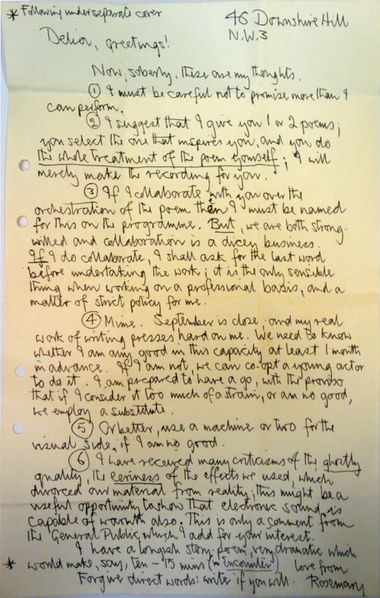 * Following under separate cover
46 Downshire Hill
N.W.3
Delia, greetings!
Now, soberly, these are my thoughts.
① I must be careful not to promise more than I
can perform.
② I suggest that I give you 1 or 2 poems;
you select the one that inspires you, and you do
the whole treatment of the poem yourself; I will
merely make the recording for you.
③ If I collaborate with you over the
orchestration of the poem then I must be named
for this on the programme. But, we are both strong-
willed and collaboration is a dicey business.
If I do collaborate, I shall ask for the last word
before undertaking the work; it is the only sensible
thing when working on a professional basis, and a
matter of strict policy for me.
④ Mime. September is close and my real
work of writing presses hard on me. We need to know
whether I am any good in this capacity at least 1 month
in advance. If I am not, we can co-opt a young actor
to do it. I am prepared to have a go, with the proviso
that if I consider it too much of a strain, or am no good,
we employ a substitute.
⑤ Or better, use a machine or two for the
visual side, if I am no good.
⑥ I have received many criticisms of the ghostly
quality, the eeriness of the effects we used which
divorced our material from reality; this might be a
useful opportunity to show that electronic sound is
capable of warmth also. This is only a comment from
the General Public which I add for your interest.
I have a longish story poem, very dramatic which
* would make, say, ten - 15 mins (an encounter)
love from
Forgive direct words: write if you will. Rosemary